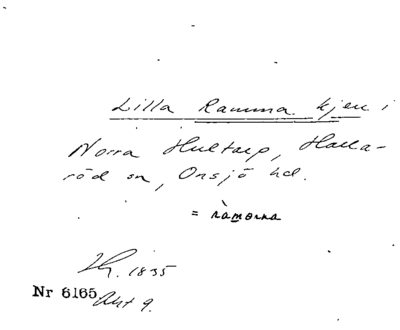 Lilla Ramma kjen i
Norra Hultarp, Halla-
röd sn, Onsjö hd.
= råmorna
1835
Nr 6165 Akt 9.